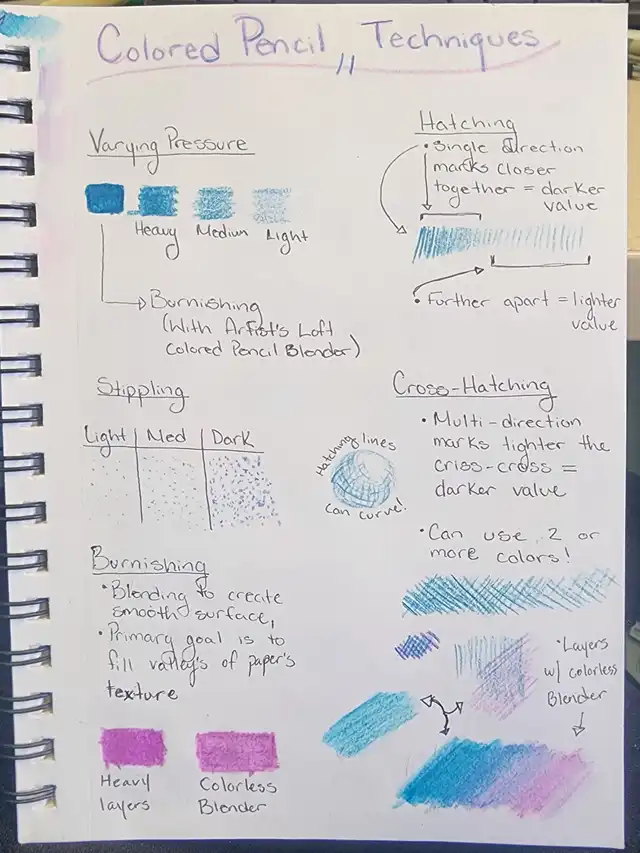 Colored Pencil Techniques
Varying Pressure
Heavy Medium Light
Burnishing
(With Artist's Loft
Colored Pencil Blender)
Hatching
• Single direction
marks closer
together = darker
value
• Further apart = lighter
value
Stippling
Light Med Dark
Hatching lines
can curve!
Cross-Hatching
• Multi-direction
marks tighter the
criss-cross =
darker value
• Can use 2 or
more colors!
Burnishing
• Blending to create
smooth surface,
• Primary goal is to
fill valley's of paper's
texture
Heavy
layers
Colorless
Blender
• Layers
w/ colorless
Blender